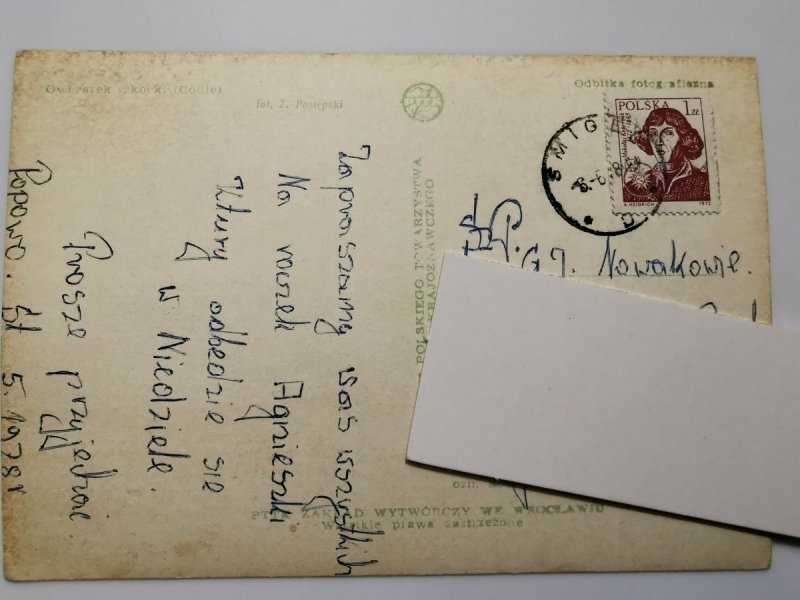 Owczarek szkocki (Collie)
fot. Z. Postępski
Odbitka fotograficzna
POLSKA 1 ZŁ
A. HEIDRICH 1972
ŚMIGIEL
POLSKIEGO TOWARZYSTWA
KRAJOZNAWCZEGO
G J. Nowakowie.
Zapraszamy was wszystkich
Na roczek Agnieszki
Ktury odbedzie sie
w Niedziele.
Prosze przyjedzcie
Popowo. St 5.1978r
PTTK ZAKŁAD WYTWÓRCZY WE WROCŁAWIU
Wszelkie prawa zastrzeżone